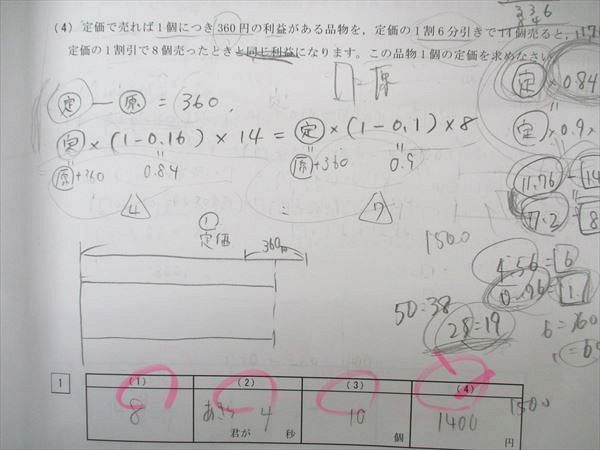 (4) 定価で売れば1個につき360円の利益がある品物を, 定価の1割6分引きで14個売ると,
定価の1割引で8個売ったときと同じ利益になります。この品物1個の定価を求めなさい
定 − 原 = 360
定 × (1-0.16) × 14 = 定 × (1-0.1) × 8
原+360 0.84 原+360 0.9
4 7
① 定価 360円
定 × 0.84
定 × 0.9 ×
11.76 − 14
7.2 − 8
1500
4.56 = 6
0.76 = 1
50=38
28=19
1
(1) (2) (3) (4)
8 4 10 1400 1500
君が 秒 個 円